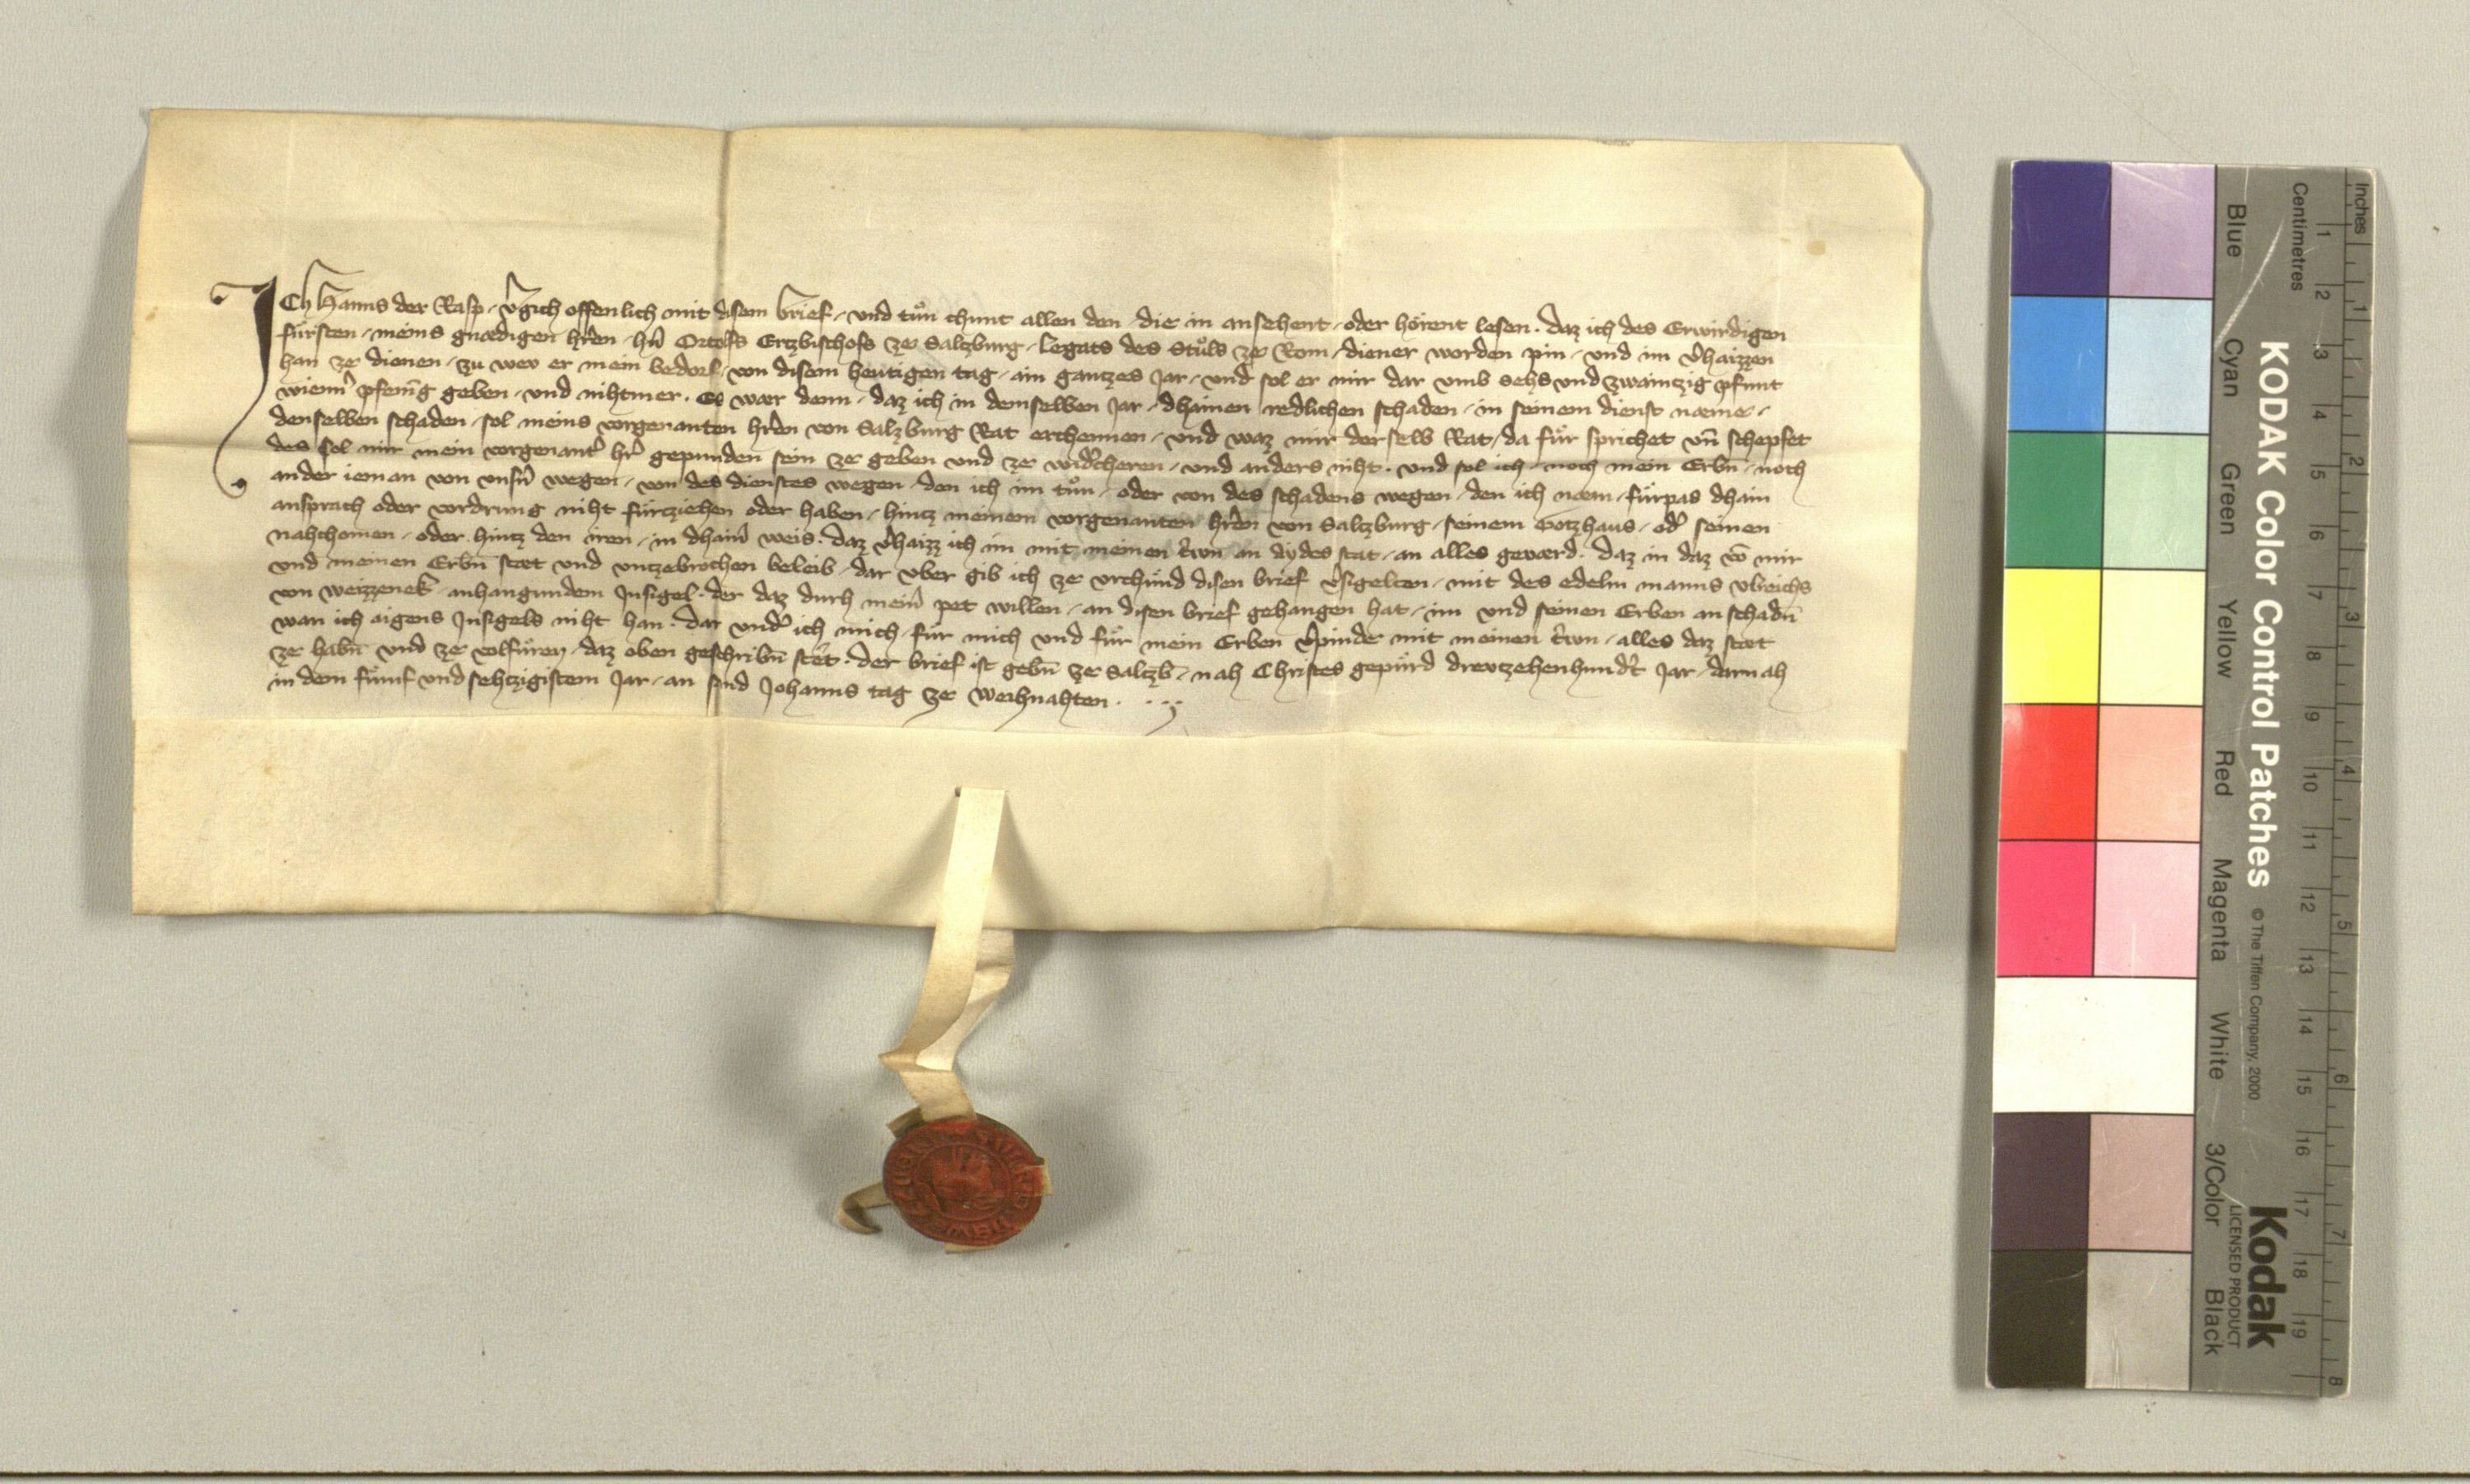 ICh Hanns der Rasp, v̂gich offenlich mit disem brief, und tůn chunt allen den, die in ansehent, oder hörent lesen. Daz ich des Erwirdigen
fürsten, meins gnædigen hr̂en, hn̂ Ortolfs Ertzbischofs ze Salzburg, Legats des Stůls ze Rom, diener worden pin, und im v̂haizzen
han ze dienen, zu wev er mein bedorf, von disem heutigen tag, ain gantzes Jar, und sol er mir dar umb sehs und zwaintzig pfunt
wienn̂ pfenn̄g geben, und nihtmer. Es wær denn, daz ich in demselben Jar, dhainen redlichen schaden, in seinem dienst næme,
denselben schaden, sol meins vorgenanten hr̂en von Salzburg Rat erchennen, und waz mir derselb Rat, da für sprichet un̄ schepfet
des sol mir mein vorgenant̂ hr̂ gepunden sein ze geben und ze wid̂cheren, und anders niht. und sol ich, noch mein Erbn̄, noch
ander ieman von unsn̂ wegen, von des dienstes wegen, den ich im tůn, oder von des schadens wegen, den ich næm, fürpas dhain
ansprach oder vordrung niht fürtziehen oder haben, hintz meinem vorgenanten hr̂en von Saltzburg, seinem Gotzhaus, od̂ seinen
nahchomen, oder hintz den iren, in dhain̂ weis. Daz v̂haizz ich im mit meinen tr̂wn an aydes stat, an alles geværd. Daz in daz vō mir
und meinen Erbn̄ stæt und untzebrochen beleib, dar über gib ich ze urchünd disen brief v̂sigelten, mit des edeln manns Ulreichs
von Weizzenek, anhangundem Insigel, der daz durh mein̂ pet willen, an disen brief gehangen hat, im und seinen Erben an schadn̄
wan ich aigens Insigels niht han. Dar und̂ ich mich, für mich und für mein Erben v̂pinde mit meinen tr̂wn, alles daz stæt
ze habn̄ und ze volfüren, daz oben geschribn̄ stêt. Der brief ist gebn̄ ze Salczb̄, nah Christes gepürd drevtzehenhund̂t Jar, darnah
in dem fünf und sehtzigistem Jar, an sand Johanns tag ze Weihnahten.
KODAK Color Control Patches © The Tiffen Company, 2000 Kodak
LICENSED PRODUCT
Blue Cyan Green Yellow Red Magenta White 3/Color Black
Centimetres 1 2 3 4 5 6 7 8 9 10 11 12 13 14 15 16 17 18 19
Inches 1 2 3 4 5 6 7 8